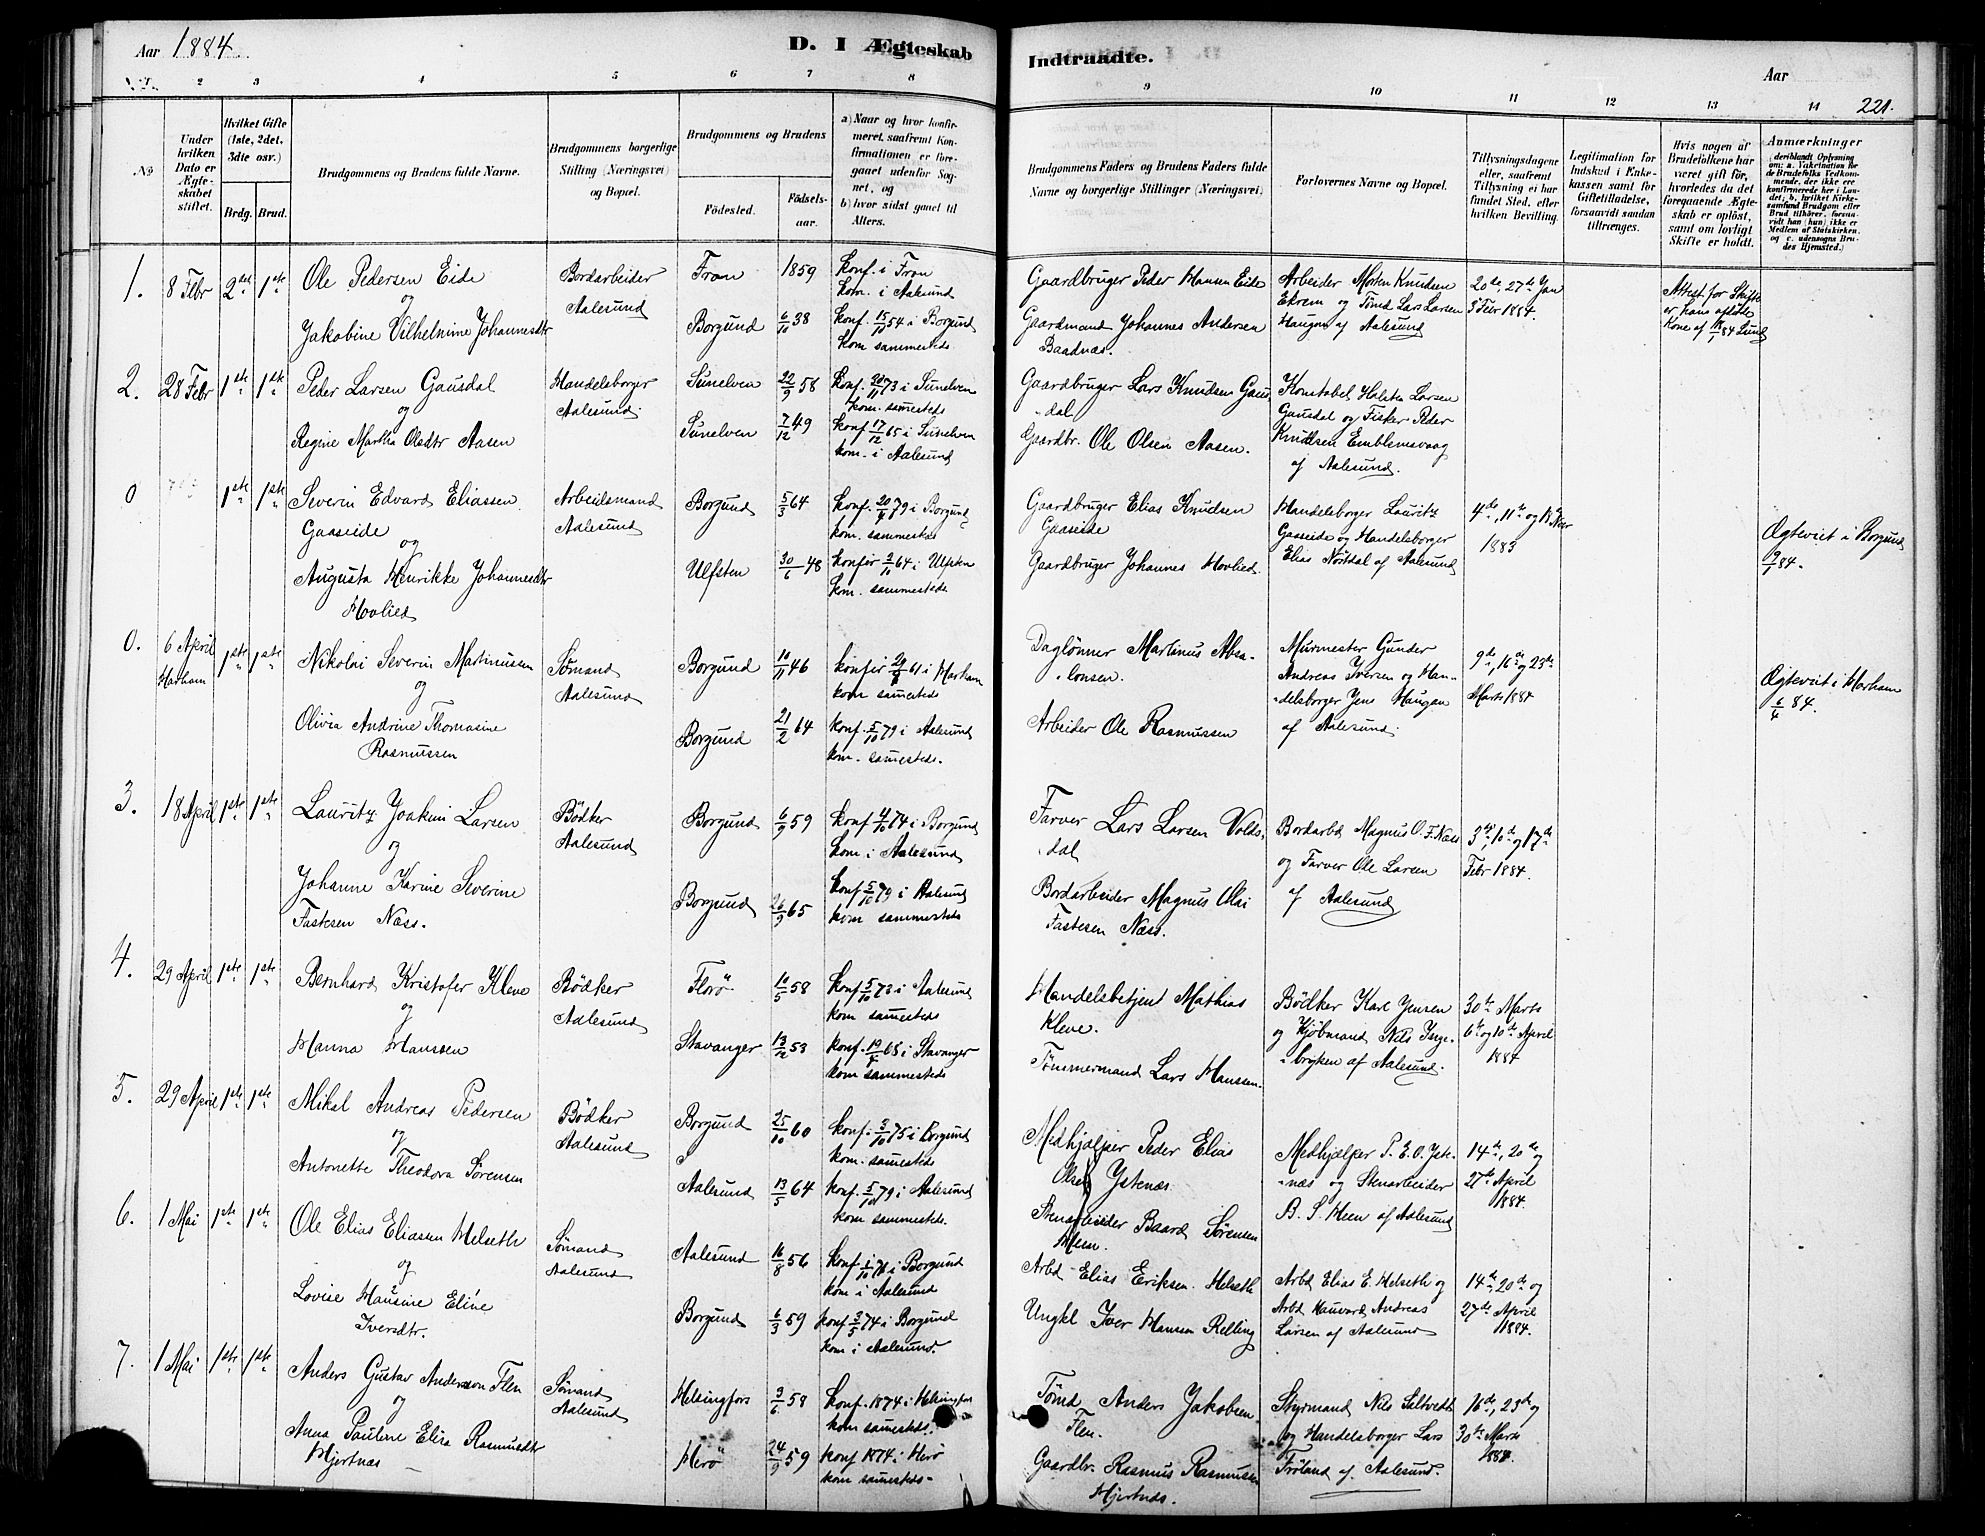 Aar 1884.
D. I Ægteskab
Indtraadte.
Aar
221.
2 3 4 5 6 7 8
9 10 11 12 13 14
№
Under hvilken Dato er Ægteskabet stiftet.
Hvilket Gifte (1ste, 2det, 3die osv.)
Brdg. Brud.
Brudgommens og Brudens fulde Navne.
Brudgommens borgerlige Stilling (Næringsvei) og Bopæl.
Brudgommens og Brudens
Fødested.
Fødselsaar.
a) Naar og hvor konfirmeret, saafremt Konfirmationen er foregaaet udenfor Sognet, og
b) hvor sidst gaaet til Alters.
Brudgommens Faders og Brudens Faders fulde Navne og borgerlige Stillinger (Næringsvei)
Forlovernes Navne og Bopæl.
Tillysningsdagene eller, saafremt Tillysning ei har fundet Sted, efter hvilken Bevilling.
Legitimation for Indskud i Enkekassen samt for Giftetilladelse, forsaavidt saadan tiltrænges.
Hvis nogen af Brudefolkene har været gift før, hvorledes da det foregaaende Ægteskab er opløst, samt om lovligt Skifte er holdt.
Anmærkninger
(deriblandt Oplysning om: a. Vakcination for de Brudefolks Vedkommende, der ikke ere konfirmerede her i Landet; b. hvilket Kirkesamfund Brudgom eller Brud tilhører, forsaavidt han (hun) ikke er Medlem af Statskirken, og c. udensogns Brudes Hjemsted.)
1. 8 Febr 2det 1ste
Ole Pedersen Eide
og
Jakobine Vilhelmine Johannesdtr
Bordarbeider
Aalesund
Fron 1859
Konf. i Fron
kom. i Aalesund
Borgund 6/10 38
Konf. 15/10 54 i Borgund
kom sammesteds
Gaardbruger Peder Hansen Eide
Gaardmand Johannes Andersen
Baadnæs.
Arbeider Morten Knudsen
Ekrem og Tømd Lars Larsen
Haugen af Aalesund
20de, 27de Jan
3 Febr 1884.
Attest for Skifte
er hans afdøde
Kone af
2. 28 Febr 1ste 1ste
Peder Larsen Gausdal
og
Regine Martha Olsdtr Aasen
Handelsborger
Aalesund.
Sunelven 22/9 58
Konf. 20/11 73 i Sunelven
kom. samesteds
Sunelven 7/12 49
Konf 17/12 65 i Sunelven
kom. i Aalesund
Gaardbruger Lars Knudsen Gaus
dal
Gaardbr. Ole Olsen Aasen.
Konstabel Larsen
Gausdal og Fisker Peder
Knudsen Emblemsvaag
af Aalesund.
0 1ste 1ste
Severin Edvard Eliassen
Gaaseide
og
Augusta Henrikke Johannesdtr
Hovlied
Arbeidsmand
Aalesund
Borgund 5/3 64
konf. 20/4 79 i Borgund
kom. sammesteds
Ulfsten 30/6 48
konfir 2/10 64 i Ulfsten
kom. sammesteds
Gaardbruger Elias Knudsen
Gaaseide
Gaardbruger Johannes Hovlied.
Handelsborger Lauritz
Gaaseide og Handelsborger
Elias Nørdal af Aalesund
4de, 11te og 18 Nov
1883
Ægteviet i Borgund
9/1 84.
0. 6 April
Harham 1ste 1ste
Nikolai Severin Martinussen
og
Olivia Andrine Thomasine
Rasmussen
Sømand
Aalesund
Borgund 10/11 46
konfir 61 i Harham
kom samesteds
Borgund 21/2 64
konf. 5/10 79 i Aalesund
kom. samesteds.
Daglønner Martinus Absa
lonsen.
Arbeider Ole Rasmussen
Murmester Gunder
Andreas Iversen og Han
delsborger Jens Haugen
af Aalesund.
9de, 16de og 23de
Marts 1884
Ægteviet i Harham
6/4 84.
3. 18 April 1ste 1ste
Lauritz Joakim Larsen
og
Johanne Karine Severine
Fastesen Næss.
Bödker
Aalesund
Borgund 6/9 59
konf 4/10 74 i Borgund
kom i Aalesund
Borgund 26/9 65
konf 5/10 79 i Aalesund
kom sammesteds
Farver Lars Larsen Volds
dal
Bordarbeider Magnus Olai
Fastesen Næss.
Bordarbd Magnus O. F. Næss
og Farver Ole Larsen
af Aalesund
3de, 10de og 17de
Febr 1884.
4. 29 April 1ste 1ste
Bernhard Kristofer Kleve
og
Hanna Hanssen
Bödker
Aalesund
Florö 10/5 58
konf 5/10 73 i Aalesund
kom samesteds
Stavanger 13/12 53
konf. 68 i Stavanger
kom sammesteds
Handelsbetjent Mathias
Kleve.
Tømmermand Lars Hanssen.
Bödker Karl Jensen
og Kjøbmand Nils Inge
brigtsen af Aalesund.
30te Marts
6te og 10de April
1884
5. 29 April 1ste 1ste
Mikal Andreas Pedersen
og
Antonette Theodora Sörensen
Bödker
Aalesund
Borgund 25/10 60
konf. 3/10 75 i Borgund
kom. samesteds
Aalesund 13/5 64
konf. 5/10 79 i Aalesund
kom sammesteds.
Medhjælper Peder Elias
Olsen Ystenæs
Stenarbeider Baard Sörensen
Heen.
Medhjælper P. E. O. Yste
næs og Stenarbeider
B. S. Heen af Aalesund
14de, 20de og
27de April
1884.
6. 1 Mai 1ste 1ste
Ole Elias Eliassen Helseth
og
Lovise Hansine Eline
Iversdtr.
Sømand
Aalesund
Aalesund 16/8 56
konf 1/10 71 i Borgund
kom i Aalesund
Borgund 6/3 59
konf 3/5 74 i Borgund
kom i Aalesund.
Arbd Elias Eriksen Helseth
Ungkl Iver Hansen Relling
Arbd Elias E. Helseth og
Arbd Hauvard Andreas
Larsen af Aalesund
14de, 20de og
27de April
1884.
7. 1 Mai 1ste 1ste
Anders Gustav Anderson Flen
og
Anna Pauline Elisa Rasmusdtr
Hjertnæs
Sømand
Aalesund
Helsingfors 3/6 58
Konf. 1874 i Helsingfors
kom samesteds.
Herö 24/9 59
konf 1874 i Herö
kom samesteds
Tømd Anders Jakobsen
Flen.
Gaardbr. Rasmus Rasmussen
Hjertnæs.
Styrmand Nils Seltvedt
og Handelsborger Lars
Fröland af Aalesund.
16de, 23de og
30te Marts
1884.